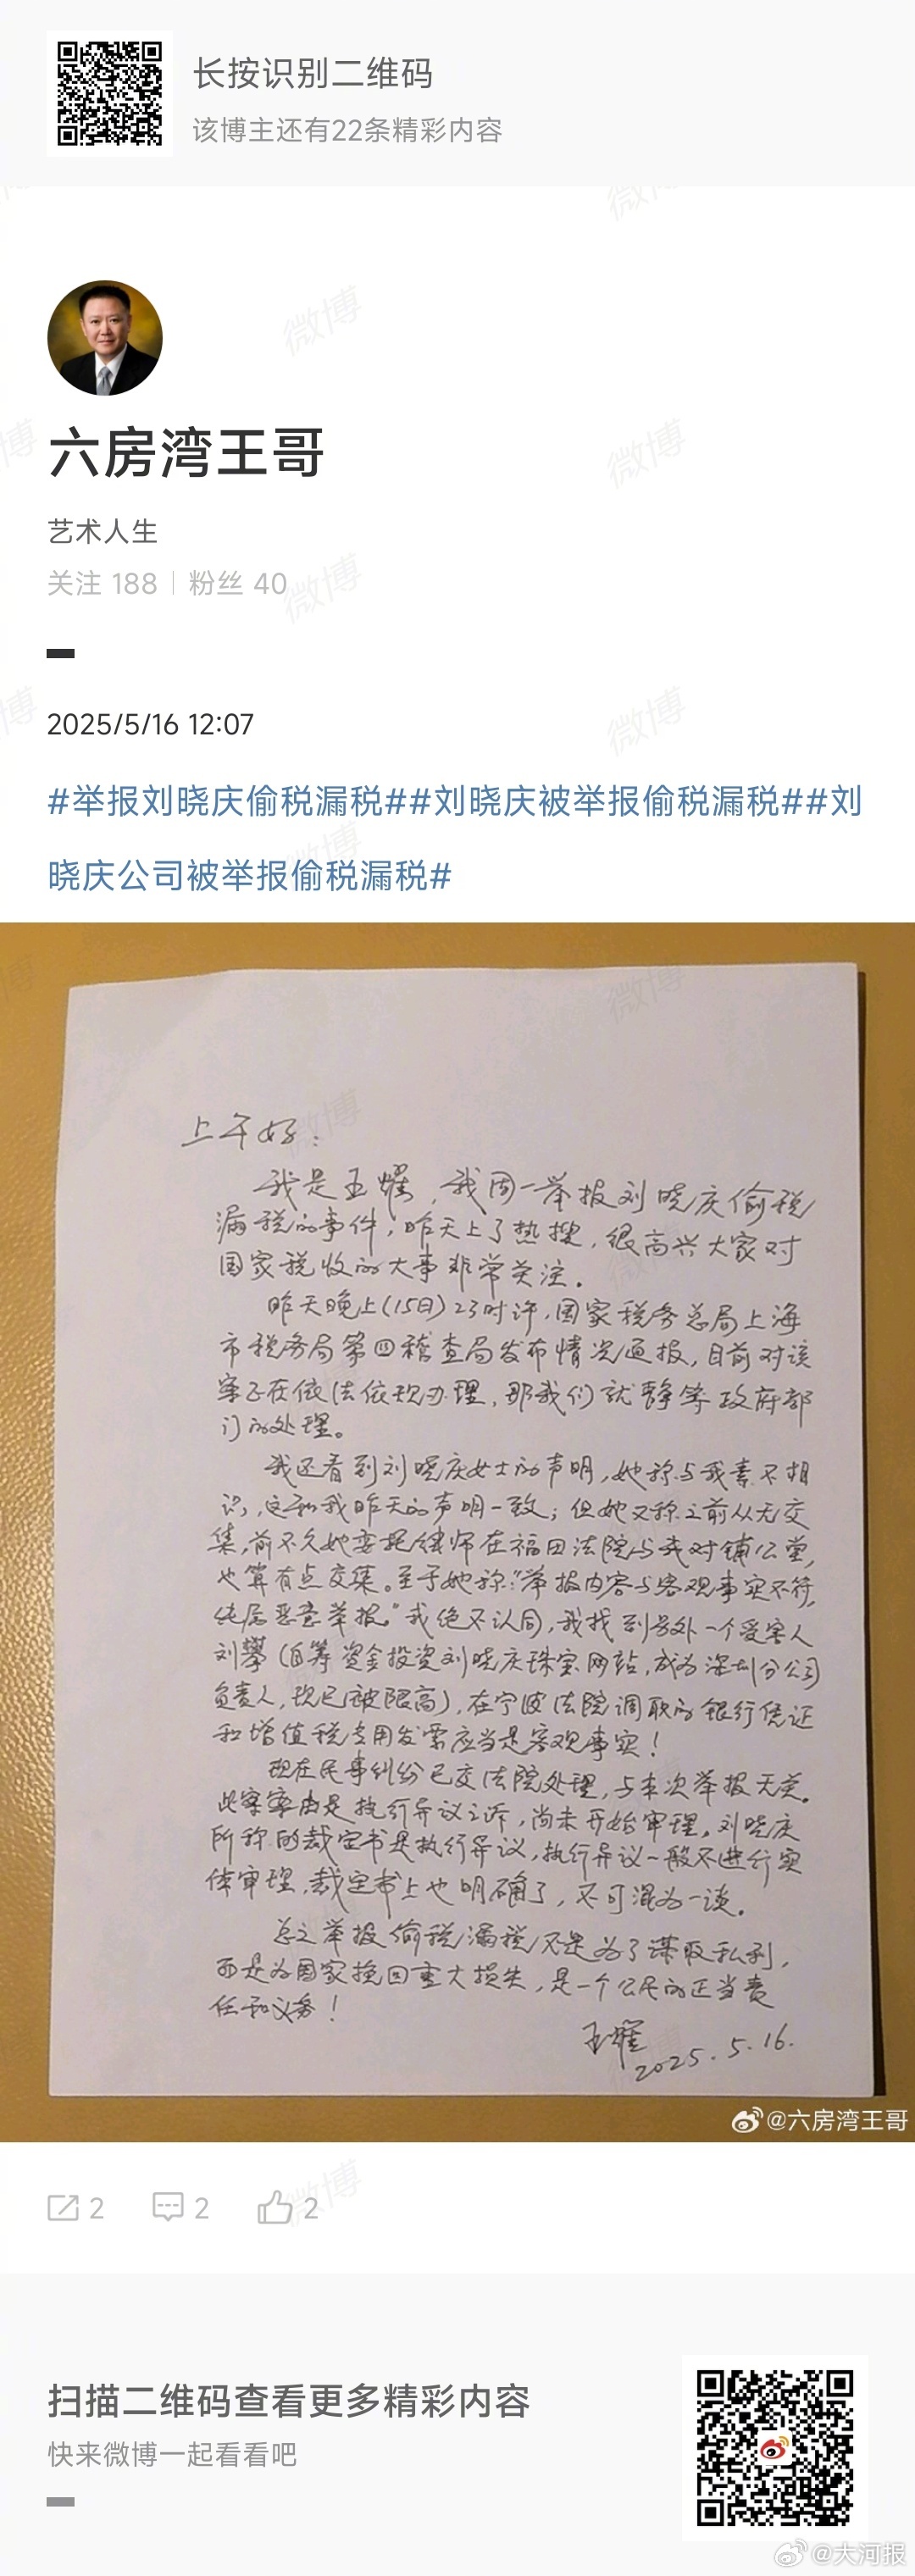 长按识别二维码
该博主还有22条精彩内容
六房湾王哥
艺术人生
关注 188 | 粉丝 40
2025/5/16 12:07
#举报刘晓庆偷税漏税##刘晓庆被举报偷税漏税##刘
晓庆公司被举报偷税漏税#
上午好:
我是王耀，我周一举报刘晓庆偷税
漏税的事件，昨天上了热搜，很高兴大家对
国家税收的大事非常关注。
昨天晚上(15日)23时许，国家税务总局上海
市税务局第四稽查局发布情况通报，目前对该
案正在依法依规办理，那我们就静等政府部
门的处理。
我还看到刘晓庆女士的声明，她称与我素不相
识，这和我昨天的声明一致；但她又称之前从无交
集，前不久她委托律师在福田法院与我对铺公堂，
也算有点交集。至于她称:“举报内容与客观事实不符，
纯属恶意举报。”我绝不认同，我找到另外一个受害人
刘攀(自筹资金投资刘晓庆珠宝网站，成为深圳分公司
负责人，现已被限高)，在宁波法院调取的银行凭证
和增值税专用发票应当是客观事实！
现在民事纠纷已交法院处理，与本次举报无关。
此案案由是执行异议之诉，尚未开始审理。刘晓庆
所称的裁定书是执行异议，执行异议一般不进行实
体审理，裁定书上也明确了，不可混为一谈。
总之举报偷税漏税不是为了谋取私利，
而是为国家挽回重大损失，是一个公民的正当责
任和义务！
王耀
2025.5.16.
@六房湾王哥
2 2 2
扫描二维码查看更多精彩内容
快来微博一起看看吧
@大河报
微博